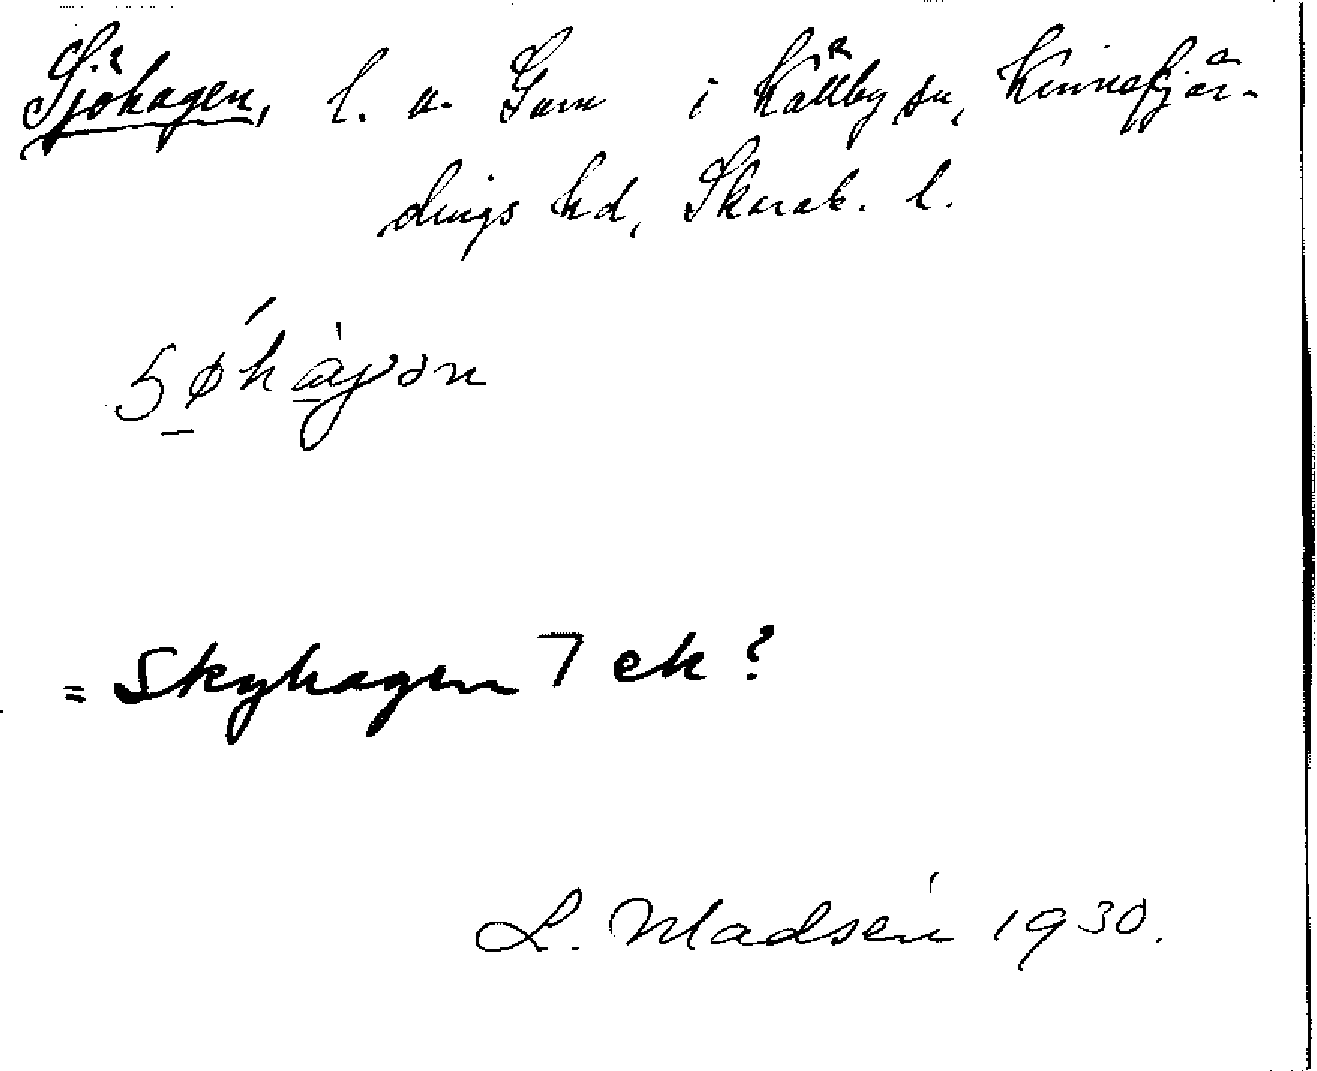 Sjöhagen, l. u. Gum i Källby sn, Kinnefjär-
dings hd, Skarab. l.
= Skyhagen 7 ek?
L. Madsén 1930.